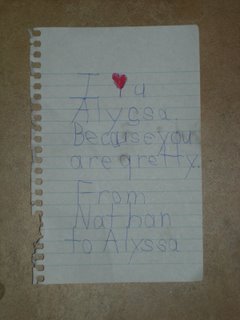 I ♥ u
Alycsa
Because you
are qretty.
From
Nathan
to Alyssa